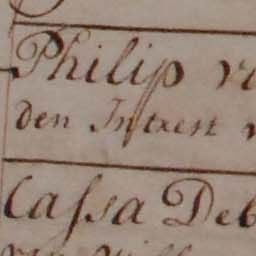 Philip v
den Intrest v
Cassa Deb